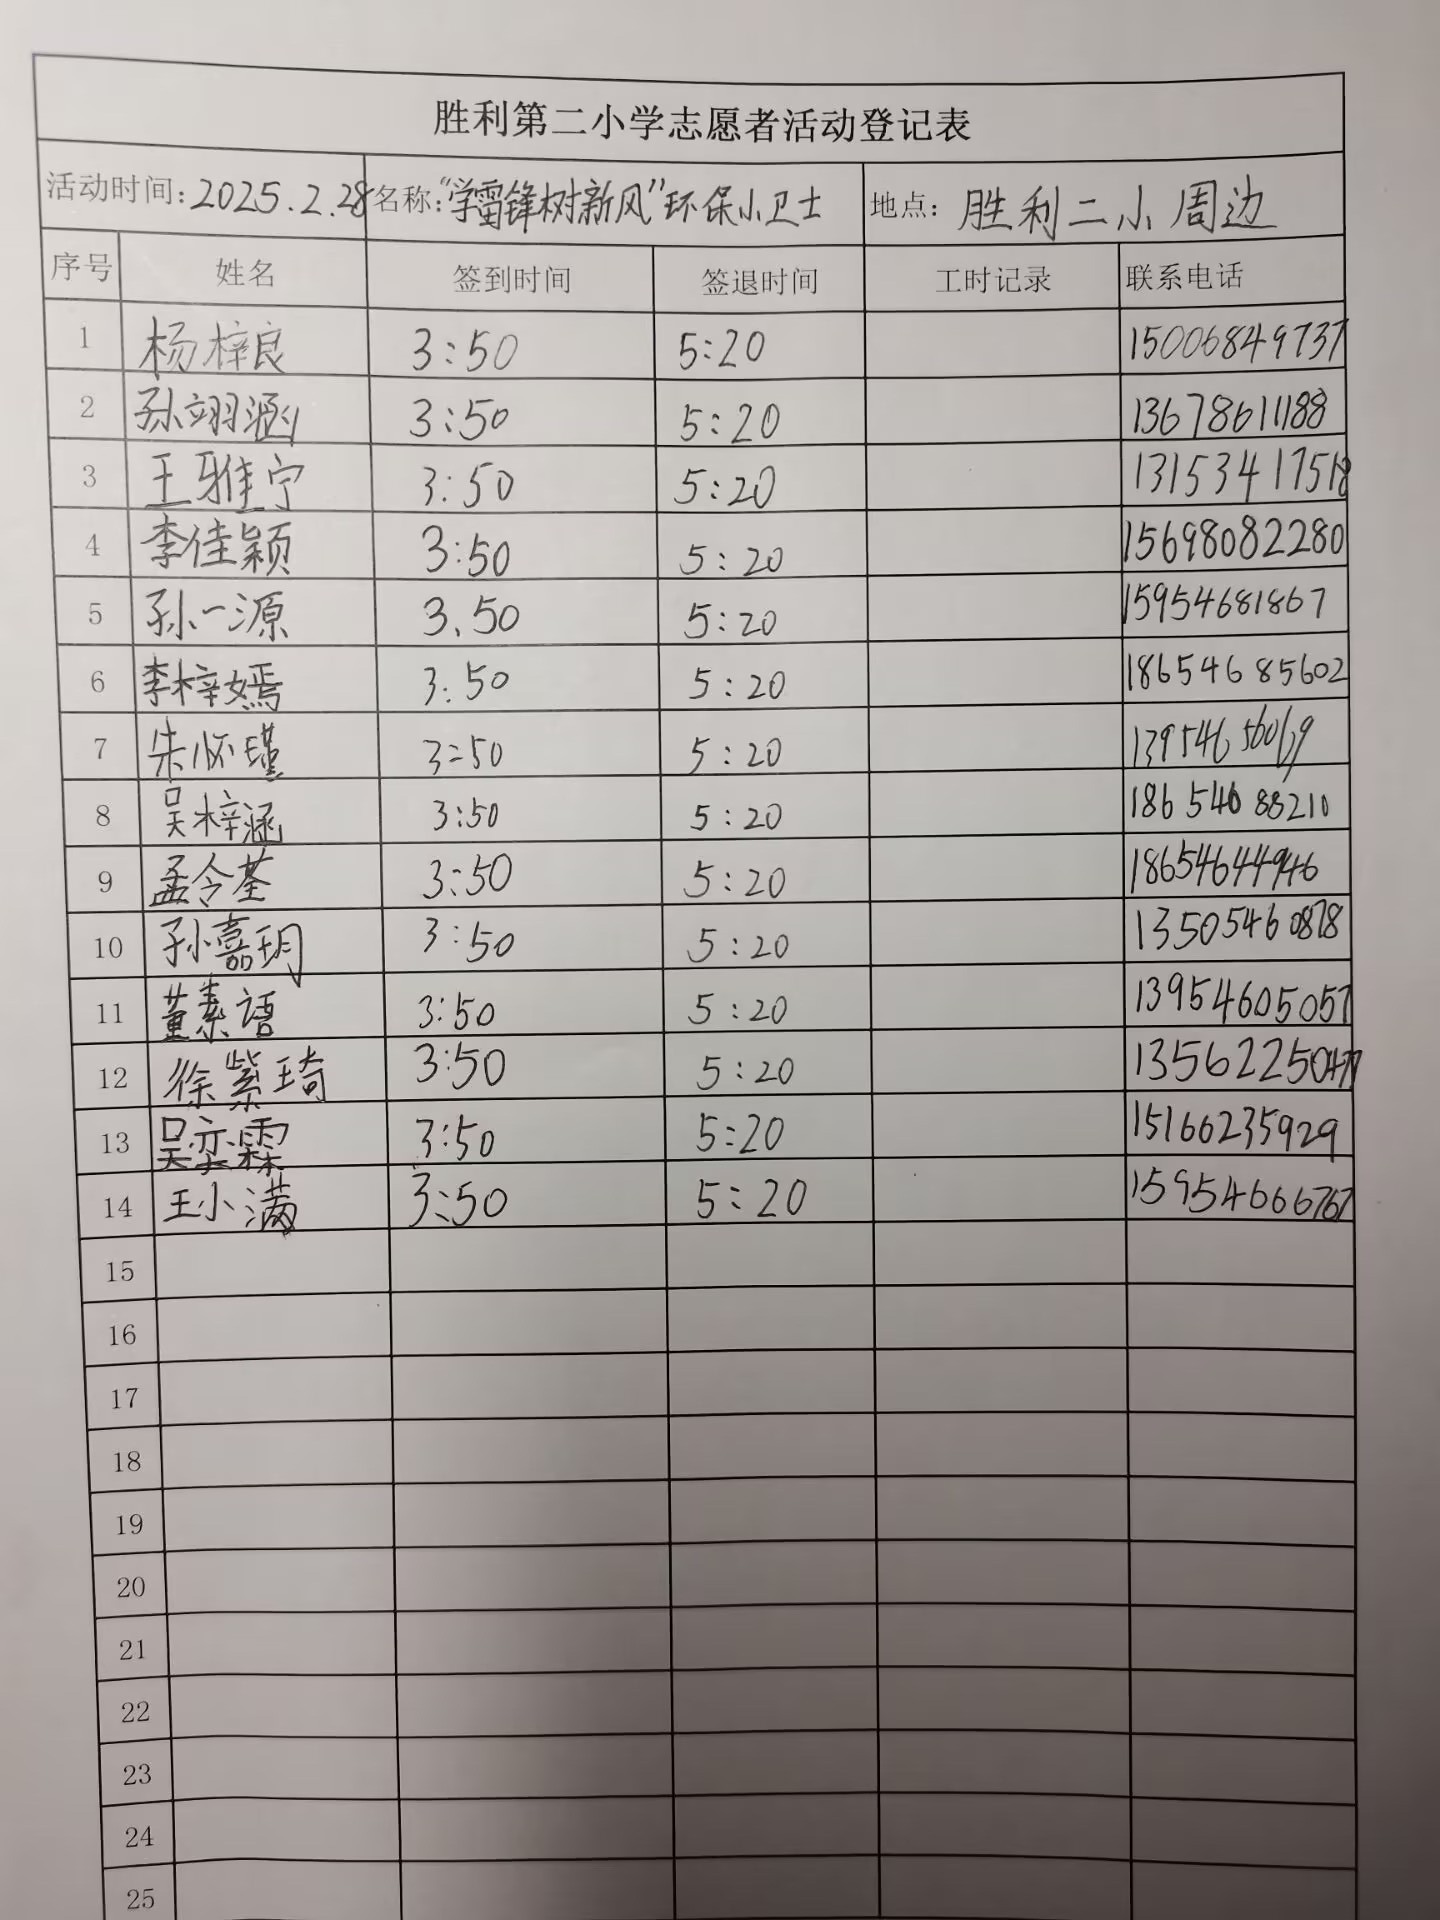 胜利第二小学志愿者活动登记表
活动时间：2025.2.28 名称：“学雷锋树新风”环保小卫士 地点：胜利二小周边
序号 姓名 签到时间 签退时间 工时记录 联系电话
1 杨梓良 3:50 5:20 15006849737
2 孙翊涵 3:50 5:20 13678611188
3 王雅宁 3:50 5:20 13153417518
4 李佳颖 3:50 5:20 15698082280
5 孙一源 3.50 5:20 15954681867
6 李梓嫣 3:50 5:20 18654685602
7 朱怀瑾 3:50 5:20 13954656069
8 吴梓涵 3:50 5:20 18654688210
9 孟令荃 3:50 5:20 18654644946
10 孙嘉玥 3:50 5:20 13505460878
11 董素语 3:50 5:20 13954605057
12 徐紫琦 3:50 5:20
13 吴奕霖 3:50 5:20 15166235929
14 王小满 3:50 5:20 15954666767
15
16
17
18
19
20
21
22
23
24
25